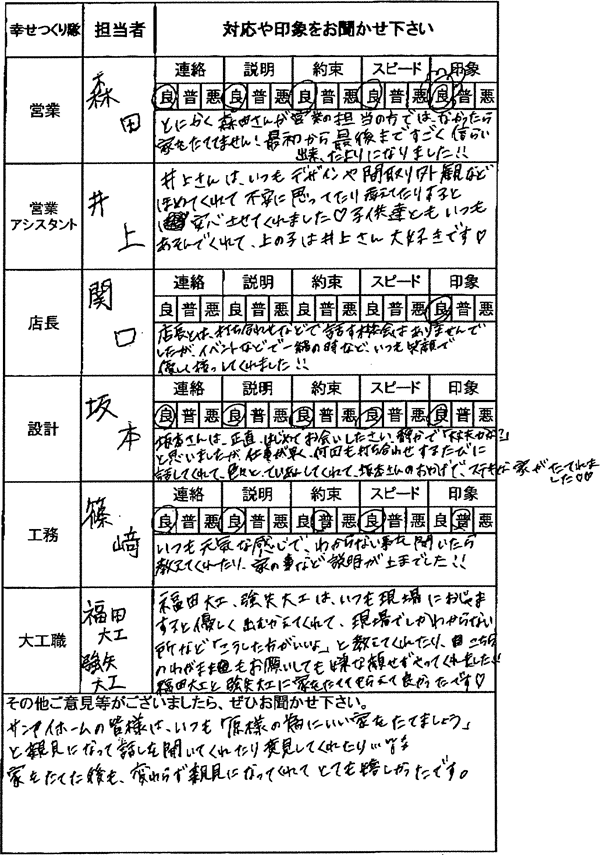 幸せつくり隊 担当者 対応や印象をお聞かせ下さい
営業 森田
連絡 説明 約束 スピード 印象
良 普 悪 良 普 悪 良 普 悪 良 普 悪 良 普 悪
とにかく森田さんが営業の担当の方ではなかったら
家をたててません!最初から最後まですごく信らい
出来、たよりになりました!!
営業
アシスタント 井上
井上さんは、いつもデザインや間取り外観など
ほめてくれて不安に思ってたり考えてたりすると
安心させてくれました♡子供達ともいつも
あそんでくれて、上の子は井上さん大好きです♡
店長 関口
連絡 説明 約束 スピード 印象
良 普 悪 良 普 悪 良 普 悪 良 普 悪 良 普 悪
店長とは、打ち合わせなどで話す機会はありませんで
したが、イベントなどで一緒の時など、いつも笑顔で
優しく接してくれました!!
設計 坂本
連絡 説明 約束 スピード 印象
良 普 悪 良 普 悪 良 普 悪 良 普 悪 良 普 悪
坂本さんは、正直、はじめてお会いしたさい、静かで「大丈夫かな?」
と思いましたが、仕事が早く、何回も打ち合わせするたびに
話してくれて、色々とていねいにしてくれて、坂本さんのおかげで、ステキな家がたてれま
した♡♡
工務 篠﨑
連絡 説明 約束 スピード 印象
良 普 悪 良 普 悪 良 普 悪 良 普 悪 良 普 悪
いつも元気な感じで、わからない事を聞いたら
教えてくれたり、家の事など説明が上手でした!!
大工職 福田大工 強矢大工
福田大工、強矢大工は、いつも現場におじゃま
すると優しく出むかえてくれて、現場でしかわからない
所など「こうした方がいいよ」と教えてくれたり、こちら
のわがままもお願いしても嫌な顔せずやってくれました!!
福田大工と強矢大工に家をたててもらえて良かったです♡
その他ご意見等がございましたら、ぜひお聞かせ下さい。
サンワイホームの皆様は、いつも「原様の為にいい家をたてましょう」
と親身になって話しを聞いてくれたり意見してくれたり
家をたてた後も、変わらず親身になってくれてとても嬉しかったです。